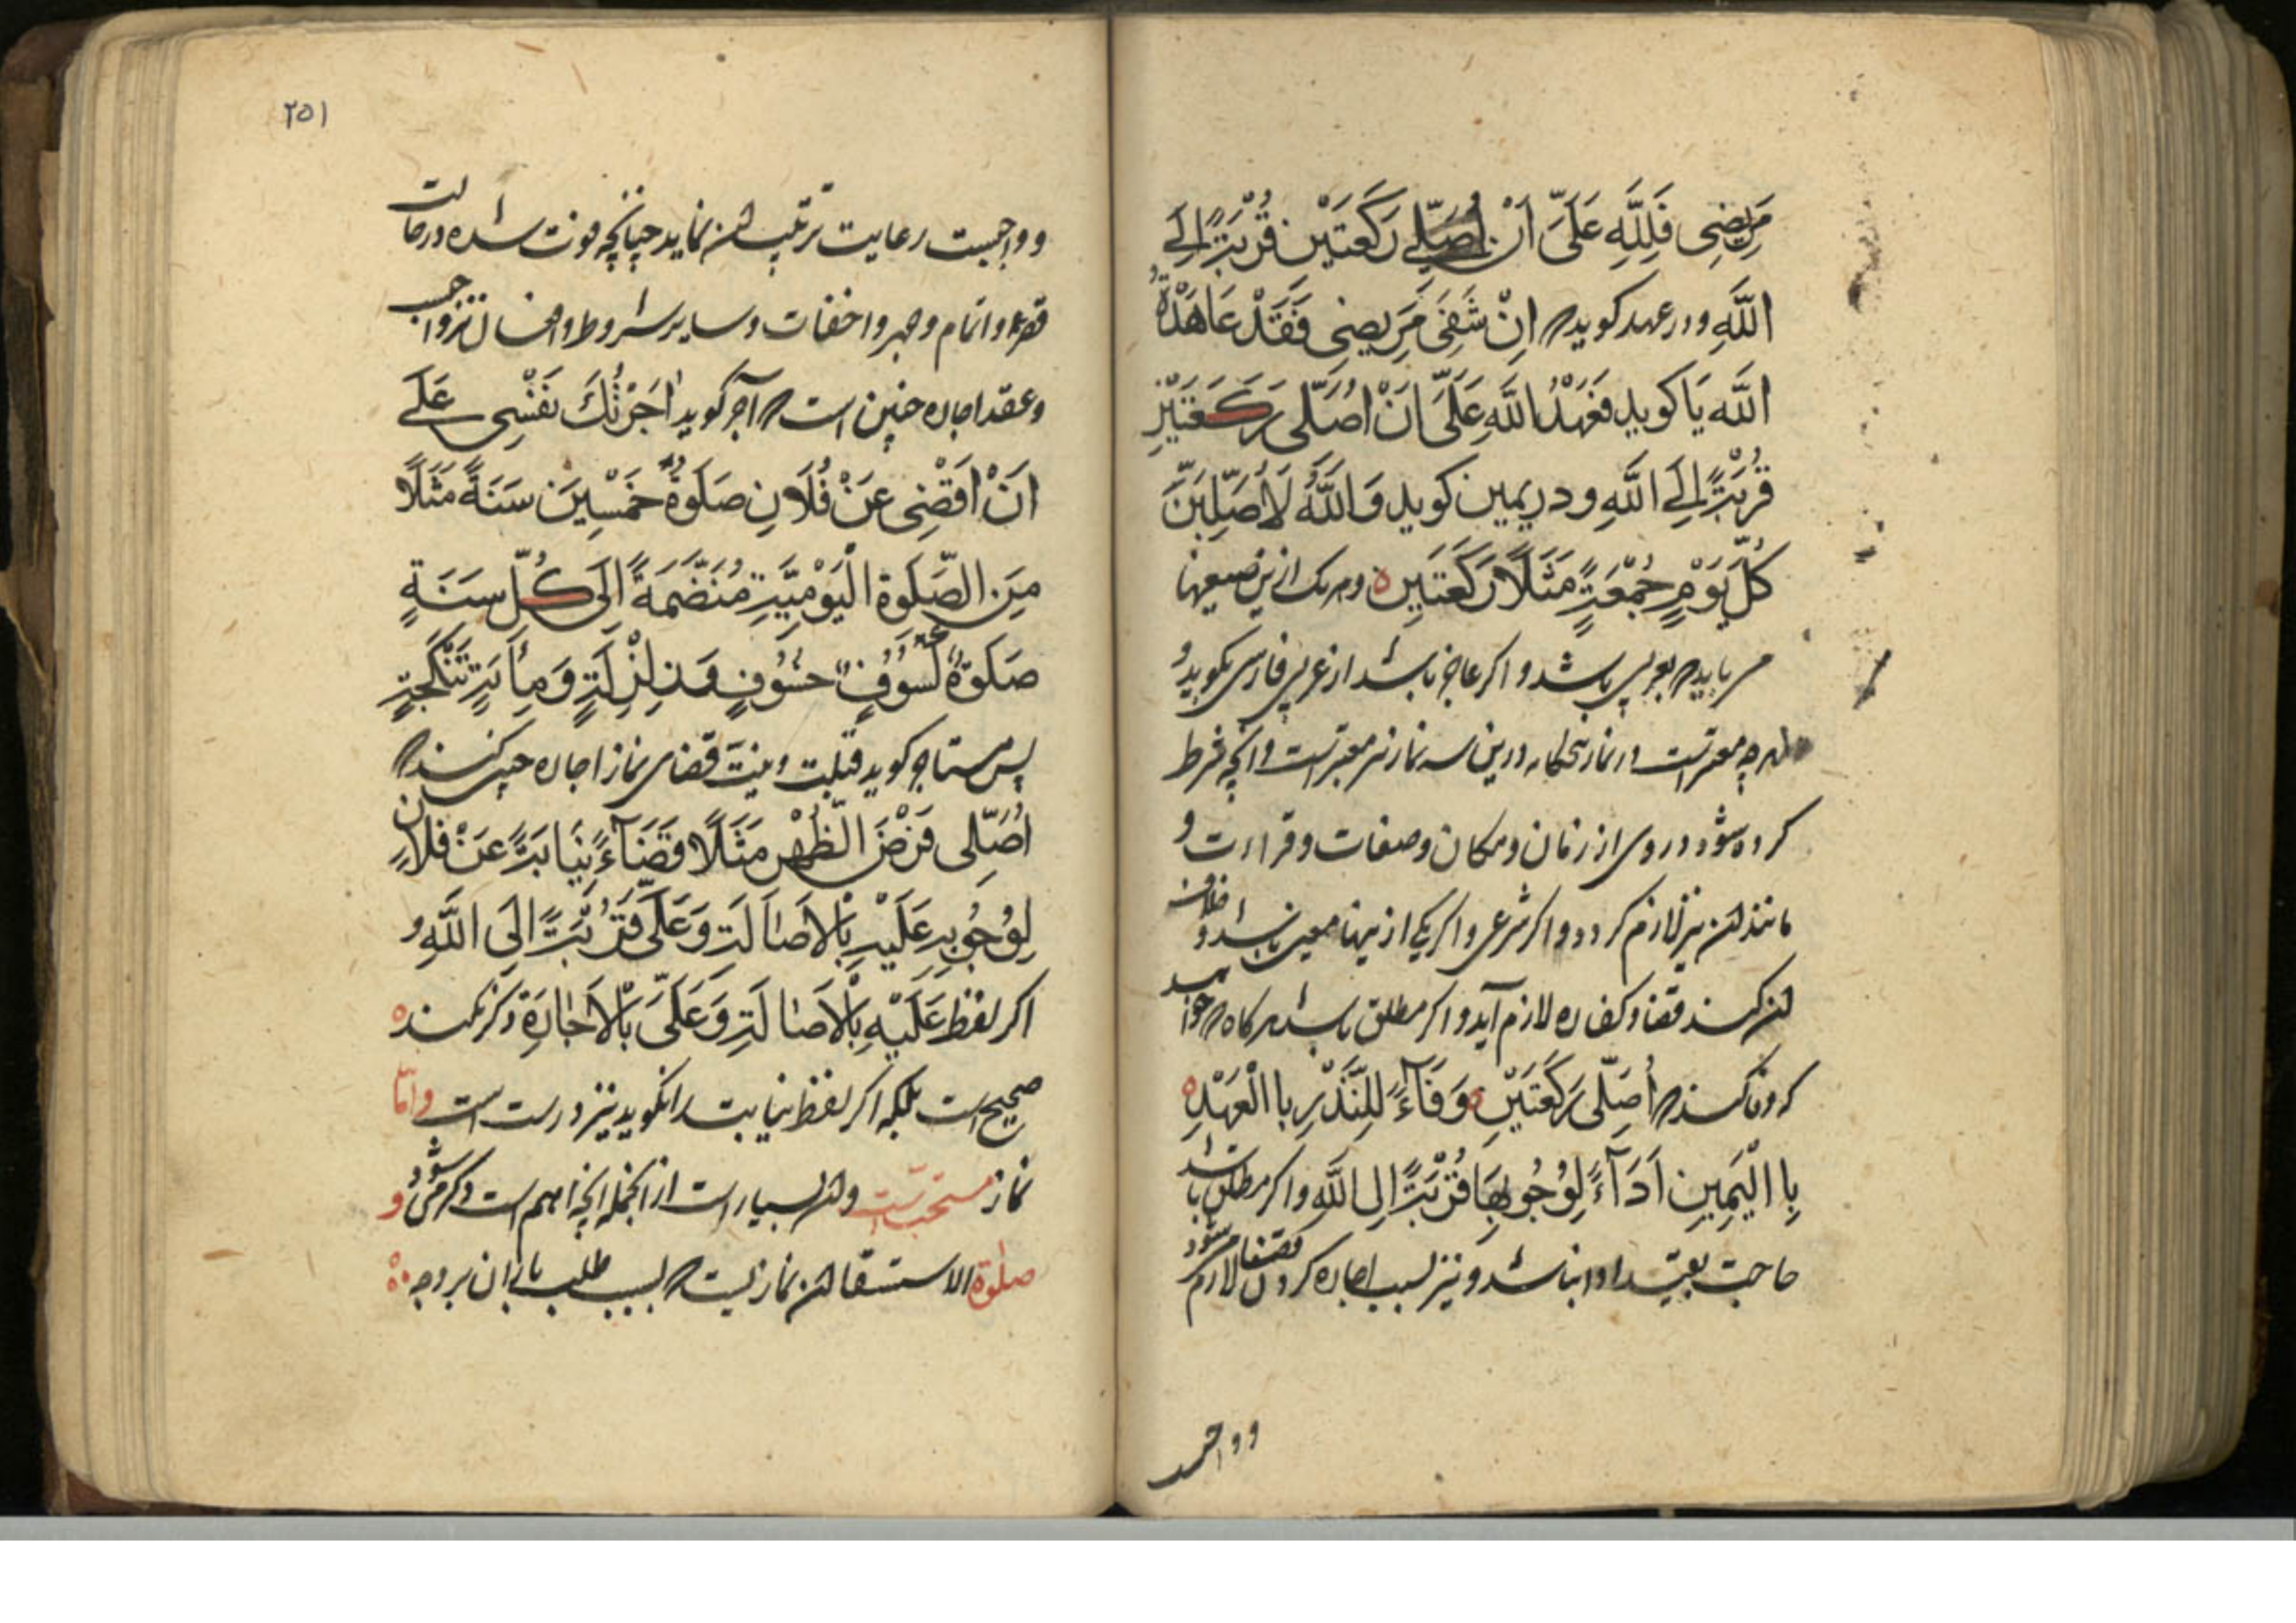 مَرِيضِى فَلِلَّهِ عَلَىَّ اَنْ اُصَلِّىَ رَكْعَتَيْنِ قُرْبَةً اِلَى
اللَّهِ و در عهد كويد كه اِنْ شَفَى مَرِيضِى فَقَدْ عَاهَدْتُ
اللَّه يَا كويد فَعَهْدُ اللَّهِ عَلَىَّ اَنْ اُصَلّى رَكْعَتَيْنِ
قُرْبَةً اِلَى اللَّهِ و در يمين كويد وَاللَّهُ لَاُصَلِّيَنَّ
كُلَّ يَوْمِ جُمْعَةٍ مَثَلًا رَكْعَتَيْنِ وهر يك ازين صيغها
مى بايد كه بعربى باشد و اكر عاجز باشد از عربى فارسى بكويد و
هرچه معتبرست در نماز پنجكانه درين سه نماز نيز معتبرست وانچه شرط
كرده شود در وى از زمان ومكان وصفات وقراءت و
مانند آن نيز لازم كردد و اكر شرعى واكر يكى ازينها معين باشد و خلاف
آن كند قضا وكفاره لازم آيد و اكر مطلق باشد هركاه كه خواهد
كه وفا كند كه اُصَلّى رَكْعَتَيْنِ وَفَآءً لِلنَّذْرِ يا الْعَهْدِ
يا الْيَمِينِ اَدَآءً لِوُجُوبِهَا قُرْبَةً اِلى اللَّهِ واكر مطلق باشد
حاجت بقيد ادا نباشد و نيز بسبب اجاره كردن قضا لازم مى شود
و واجب
٢٥١
و واجبست رعايت ترتيب آن نمايد چنانچه فوت شده در حالت
قصر و اتمام و جهر و اخفات و ساير شروط و افعال نيز واجب
و عقد اجاره چنين است كه آجر كويد اٰجَرْتُكَ نَفْسِى عَلَى
اَنْ اَقْضِىَ عَنْ فُلَانِ صَلَوةُ خَمْسِينَ سَنَةً مَثَلًا
مِنَ الصَّلَوة الْيَوْمِيَّةِ مُنْضَمَةً اِلَى كُلِّ سَنَةٍ
صَلَوةُ كُسُوفٍ خسُوفٍ وَزِلْزِلَةٍ
پس مستاجر كويد قبلت و نيت قضاى نماز اجاره چنين كند كه
اُصَلّى فَرْضَ الظُّهْرِ مَثَلًا قَضَآءً نِيَابَةً عَنْ فلان
لِوُجُوبِهِ عَلَيْهِ بْالاَصَالَةِ وَعَلَىَّ قُرْبَةً اِلَى اللَّهِ و
اكر لفظ عَلَيْهِ بْالاَصَالَةِ وَعَلَىَّ بْالاَجَارَةِ ذكر نكند
صحيح است بلكه اكر لفظ نيابت را نكويد نيز درست است و امّا
نماز مستحب است و آن بسيار است از انجمله انچه اهم است ذكر مى شود و
صلوة الاستسقا آن نمازيست كه بسبب طلب باران بر وجه